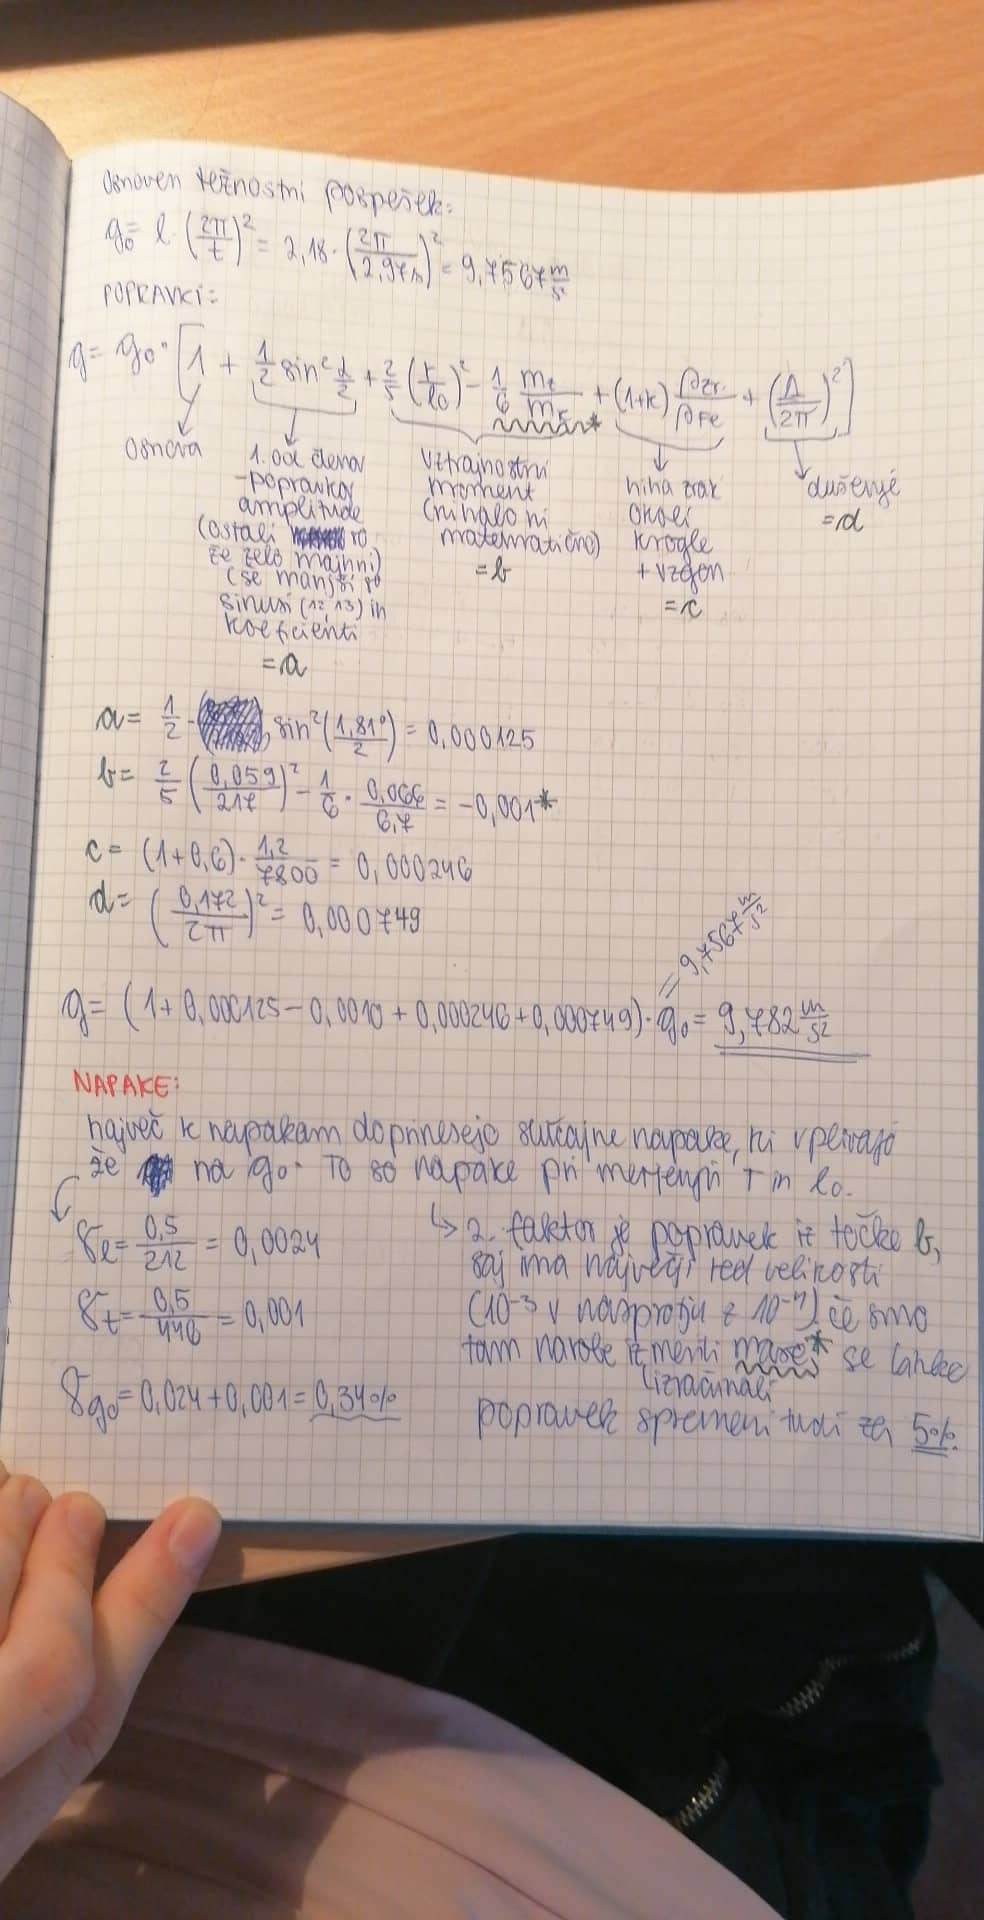 Osnoven težnostni pospešek:
g₀ = l · (2π/t)² = 2,18 · (2π/2,97s)² = 9,7567 m/s²
POPRAVKI:
g = g₀ · [1 + 1/2 sin² α/2 + 2/5 (r/l₀)² − 1/6 m_t/m_k * + (1+k) ρzr./ρFe + (Λ/2π)²]
osnova
1. od členov
-popravkov
amplitude
(ostali so
že zelo majhni)
(še manjši so
sinusi (12, 13) in
koeficienti
= a
vztrajnostni
moment
(nihalo ni
matematično)
= b
niha zrak
okoli
krogle
+ vzgon
= c
dušenje
= d
a = 1/2 · sin² (1,81°/2) = 0,000125
b = 2/5 (0,059/217)² − 1/6 · 0,066/6,7 = −0,001*
c = (1+0,6) · 1,2/7800 = 0,000246
d = (0,172/2π)² = 0,000749
= 9,7567 m/s²
g = (1 + 0,000125 − 0,0010 + 0,000246 + 0,000749) · g₀ = 9,782 m/s²
NAPAKE:
največ k napakam doprinesejo slučajne napake, ki vplivajo
že na g₀. To so napake pri merjenju T in l₀.
δl = 0,5/212 = 0,0024
δt = 0,5/446 = 0,001
δg₀ = 0,024 + 0,001 = 0,34%
↳ 2. faktor je popravek iz točke b,
saj ima največji red velikosti
(10⁻³ v nasprotju z 10⁻⁴). če smo
tam narobe izmerili mase* se lahko
(izračunali
popravek spremeni tudi za 5%.